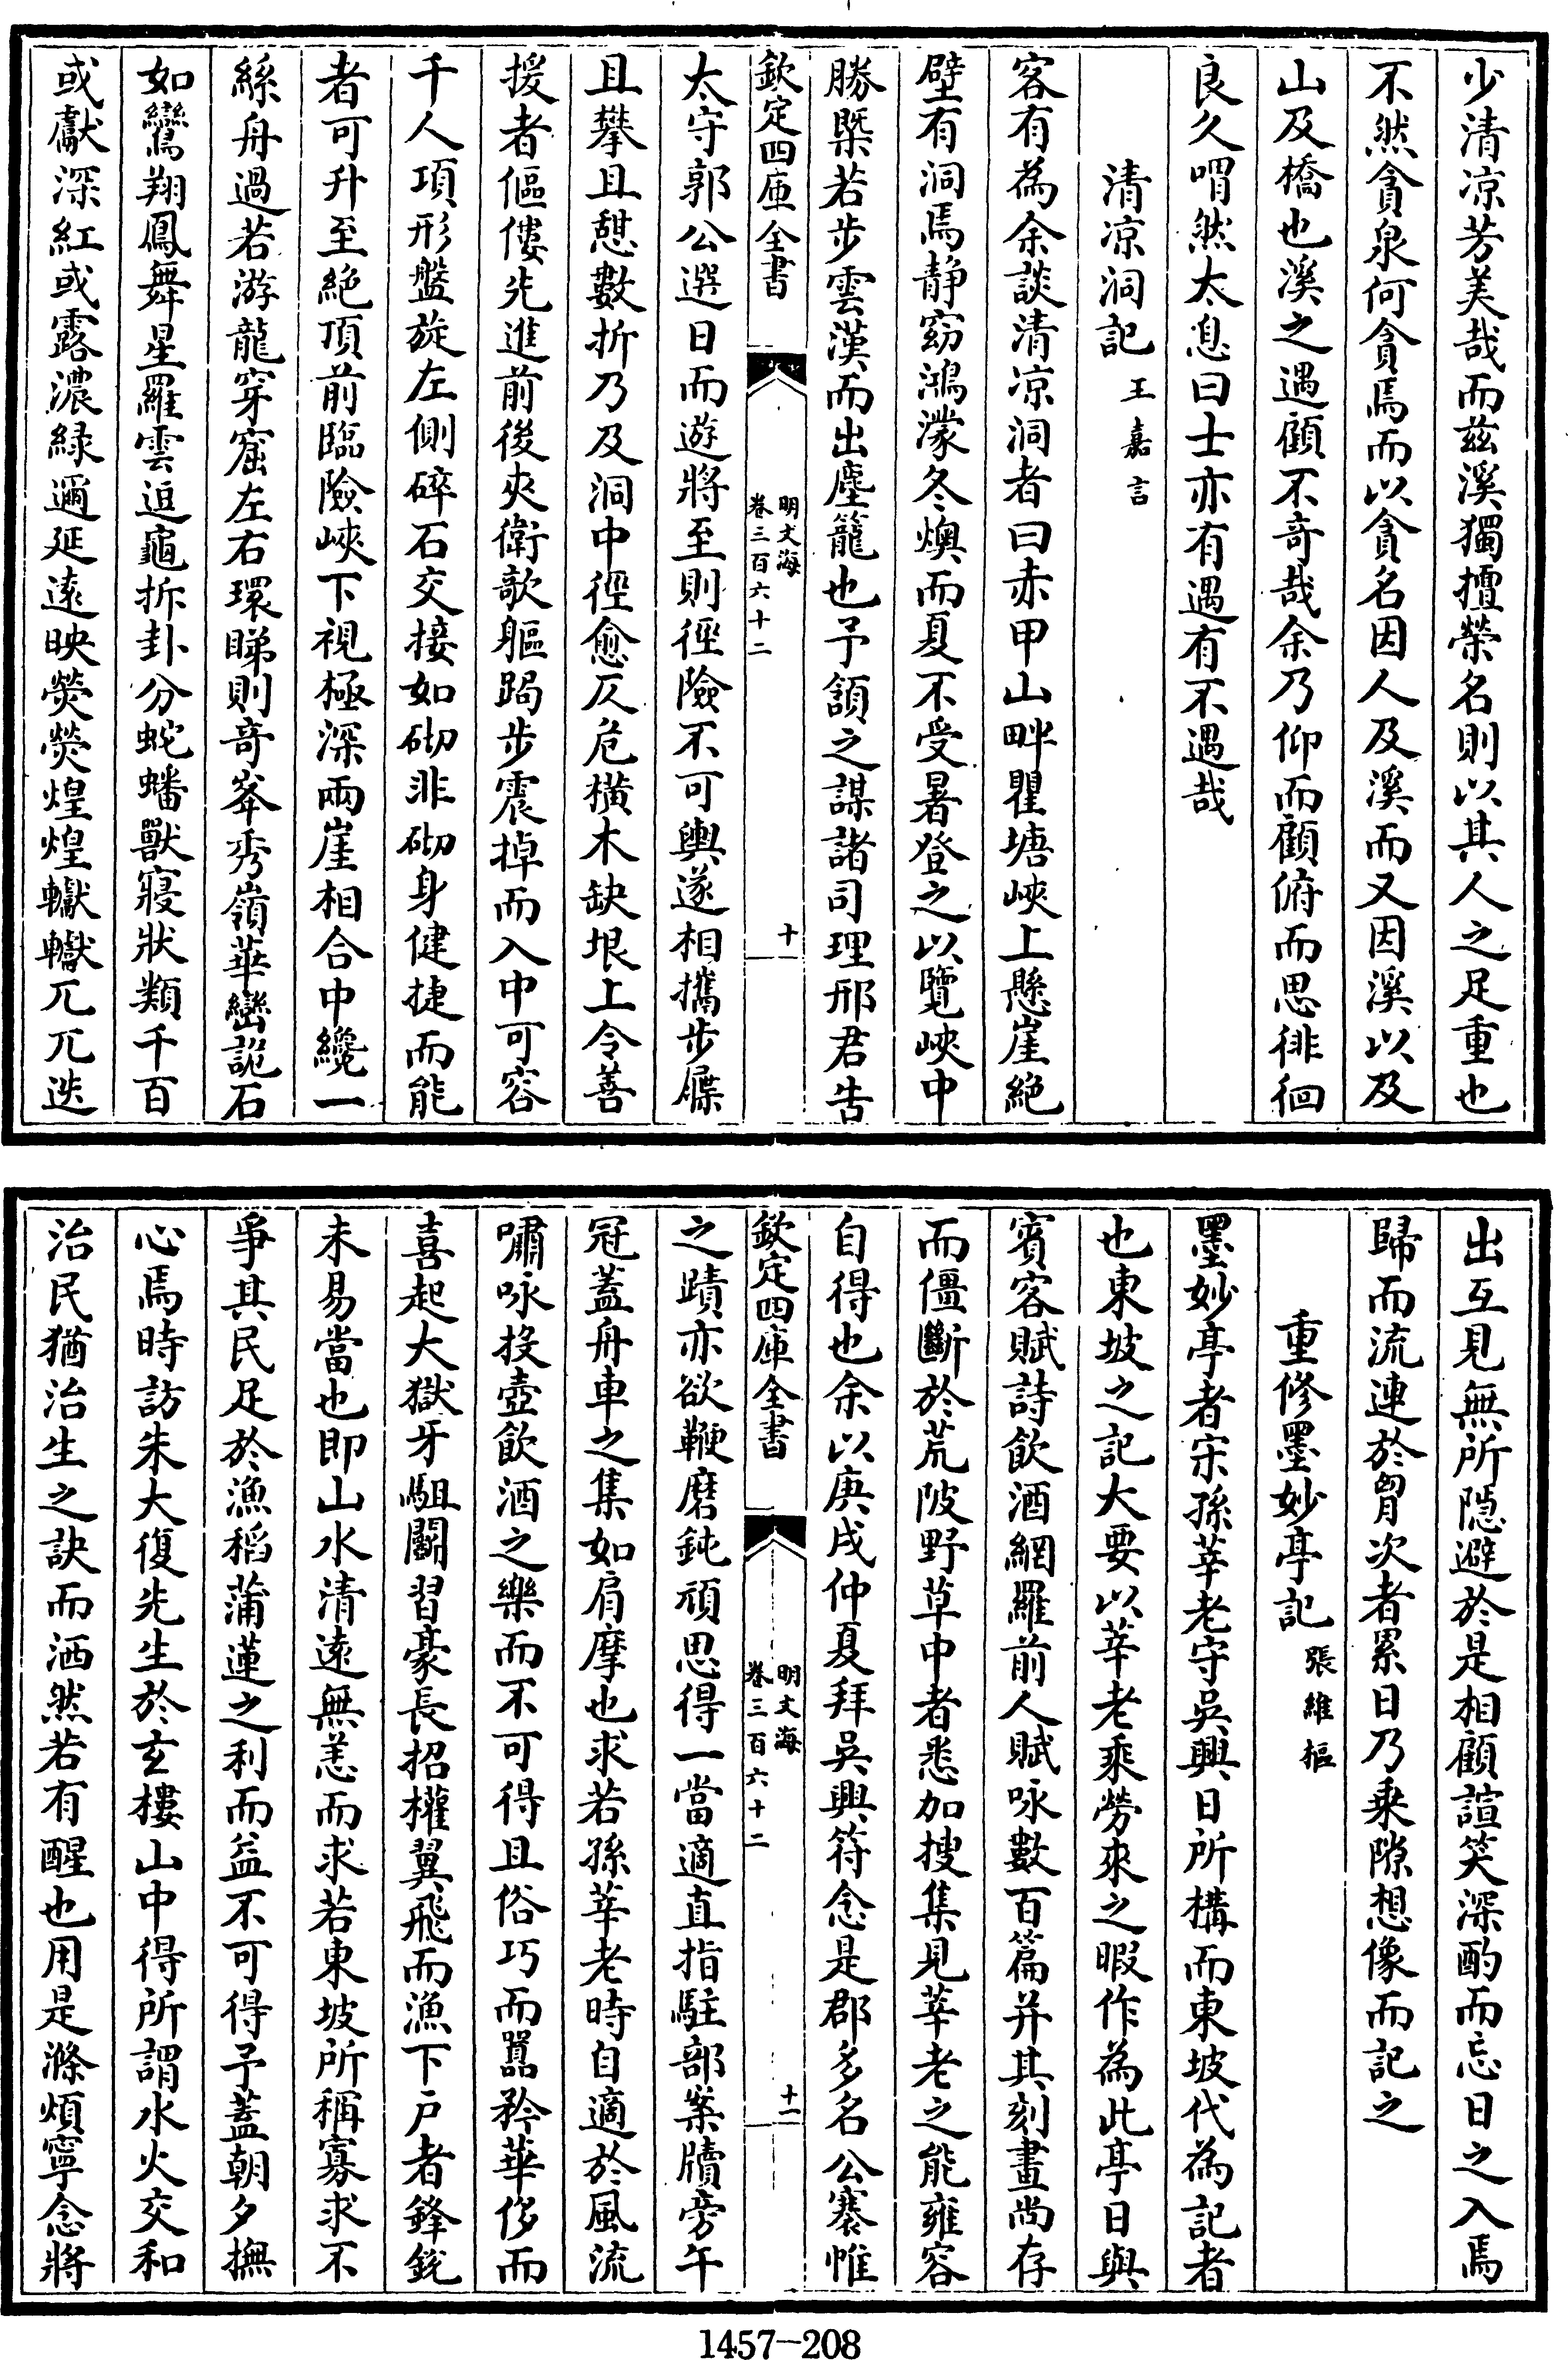 少清凉芳美哉而兹溪獨擅榮名則以其人之足重也
不然貪泉何貪焉而以貪名因人及溪而又因溪以及
山及橋也溪之遇顧不奇哉余乃仰而顧俯而思徘徊
良久喟然太息曰士亦有遇有不遇哉
清凉洞記 王嘉言
客有為余談清凉洞者曰赤甲山畔瞿塘峽上懸崖絶
壁有洞焉静窈鴻濛冬燠而夏不受暑登之以覽峽中
勝槩若步雲漢而出塵籠也予頷之謀諸司理邢君告
欽定四庫全書
明文海
卷三百六十二
十
太守郭公選日而遊將至則徑險不可輿遂相攜步屧
且攀且憩數折乃及洞中徑愈仄危橫木缺垠上令善
援者傴僂先進前後夾衛欹軀跼步震掉而入中可容
千人項形盤旋左側碎石交接如砌非砌身健捷而能
者可升至絶頂前臨險峽下視極深兩崖相合中纔一
絲舟過若游龍穿窟左右環睇則奇峯秀嶺華巒詭石
如鸞翔鳳舞星羅雲迫龜拆卦分蛇蟠獸寢狀類千百
或獻深紅或露濃緑邇延遠映熒熒煌煌轥轥兀兀迭
出互見無所隠避於是相顧諠笑深酌而忘日之入焉
歸而流連於胷次者累日乃乘隙想像而記之
重修墨妙亭記 張維樞
墨妙亭者宋孫莘老守吳興日所構而東坡代為記者
也東坡之記大要以莘老乘勞來之暇作為此亭日與
賓客賦詩飲酒網羅前人賦咏數百篇并其刻畫尚存
而僵斷於荒陂野草中者悉加搜集見莘老之能雍容
自得也余以庚戌仲夏拜吳興符念是郡多名公褰帷
欽定四庫全書
明文海
卷三百六十二
十一
之蹟亦欲鞭磨鈍頑思得一當適直指駐部案牘旁午
冠蓋舟車之集如肩摩也求若孫莘老時自適於風流
嘯咏投壺飲酒之樂而不可得且俗巧而囂矜華侈而
喜起大獄牙駔鬬習豪長招權翼飛而漁下户者鋒鋩
未易當也即山水清遠無恙而求若東坡所稱寡求不
爭其民足於漁稻蒲蓮之利而益不可得予蓋朝夕撫
心焉時訪朱大復先生於玄樓山中得所謂水火交和
治民猶治生之訣而洒然若有醒也用是滌煩寧念將
1457-208